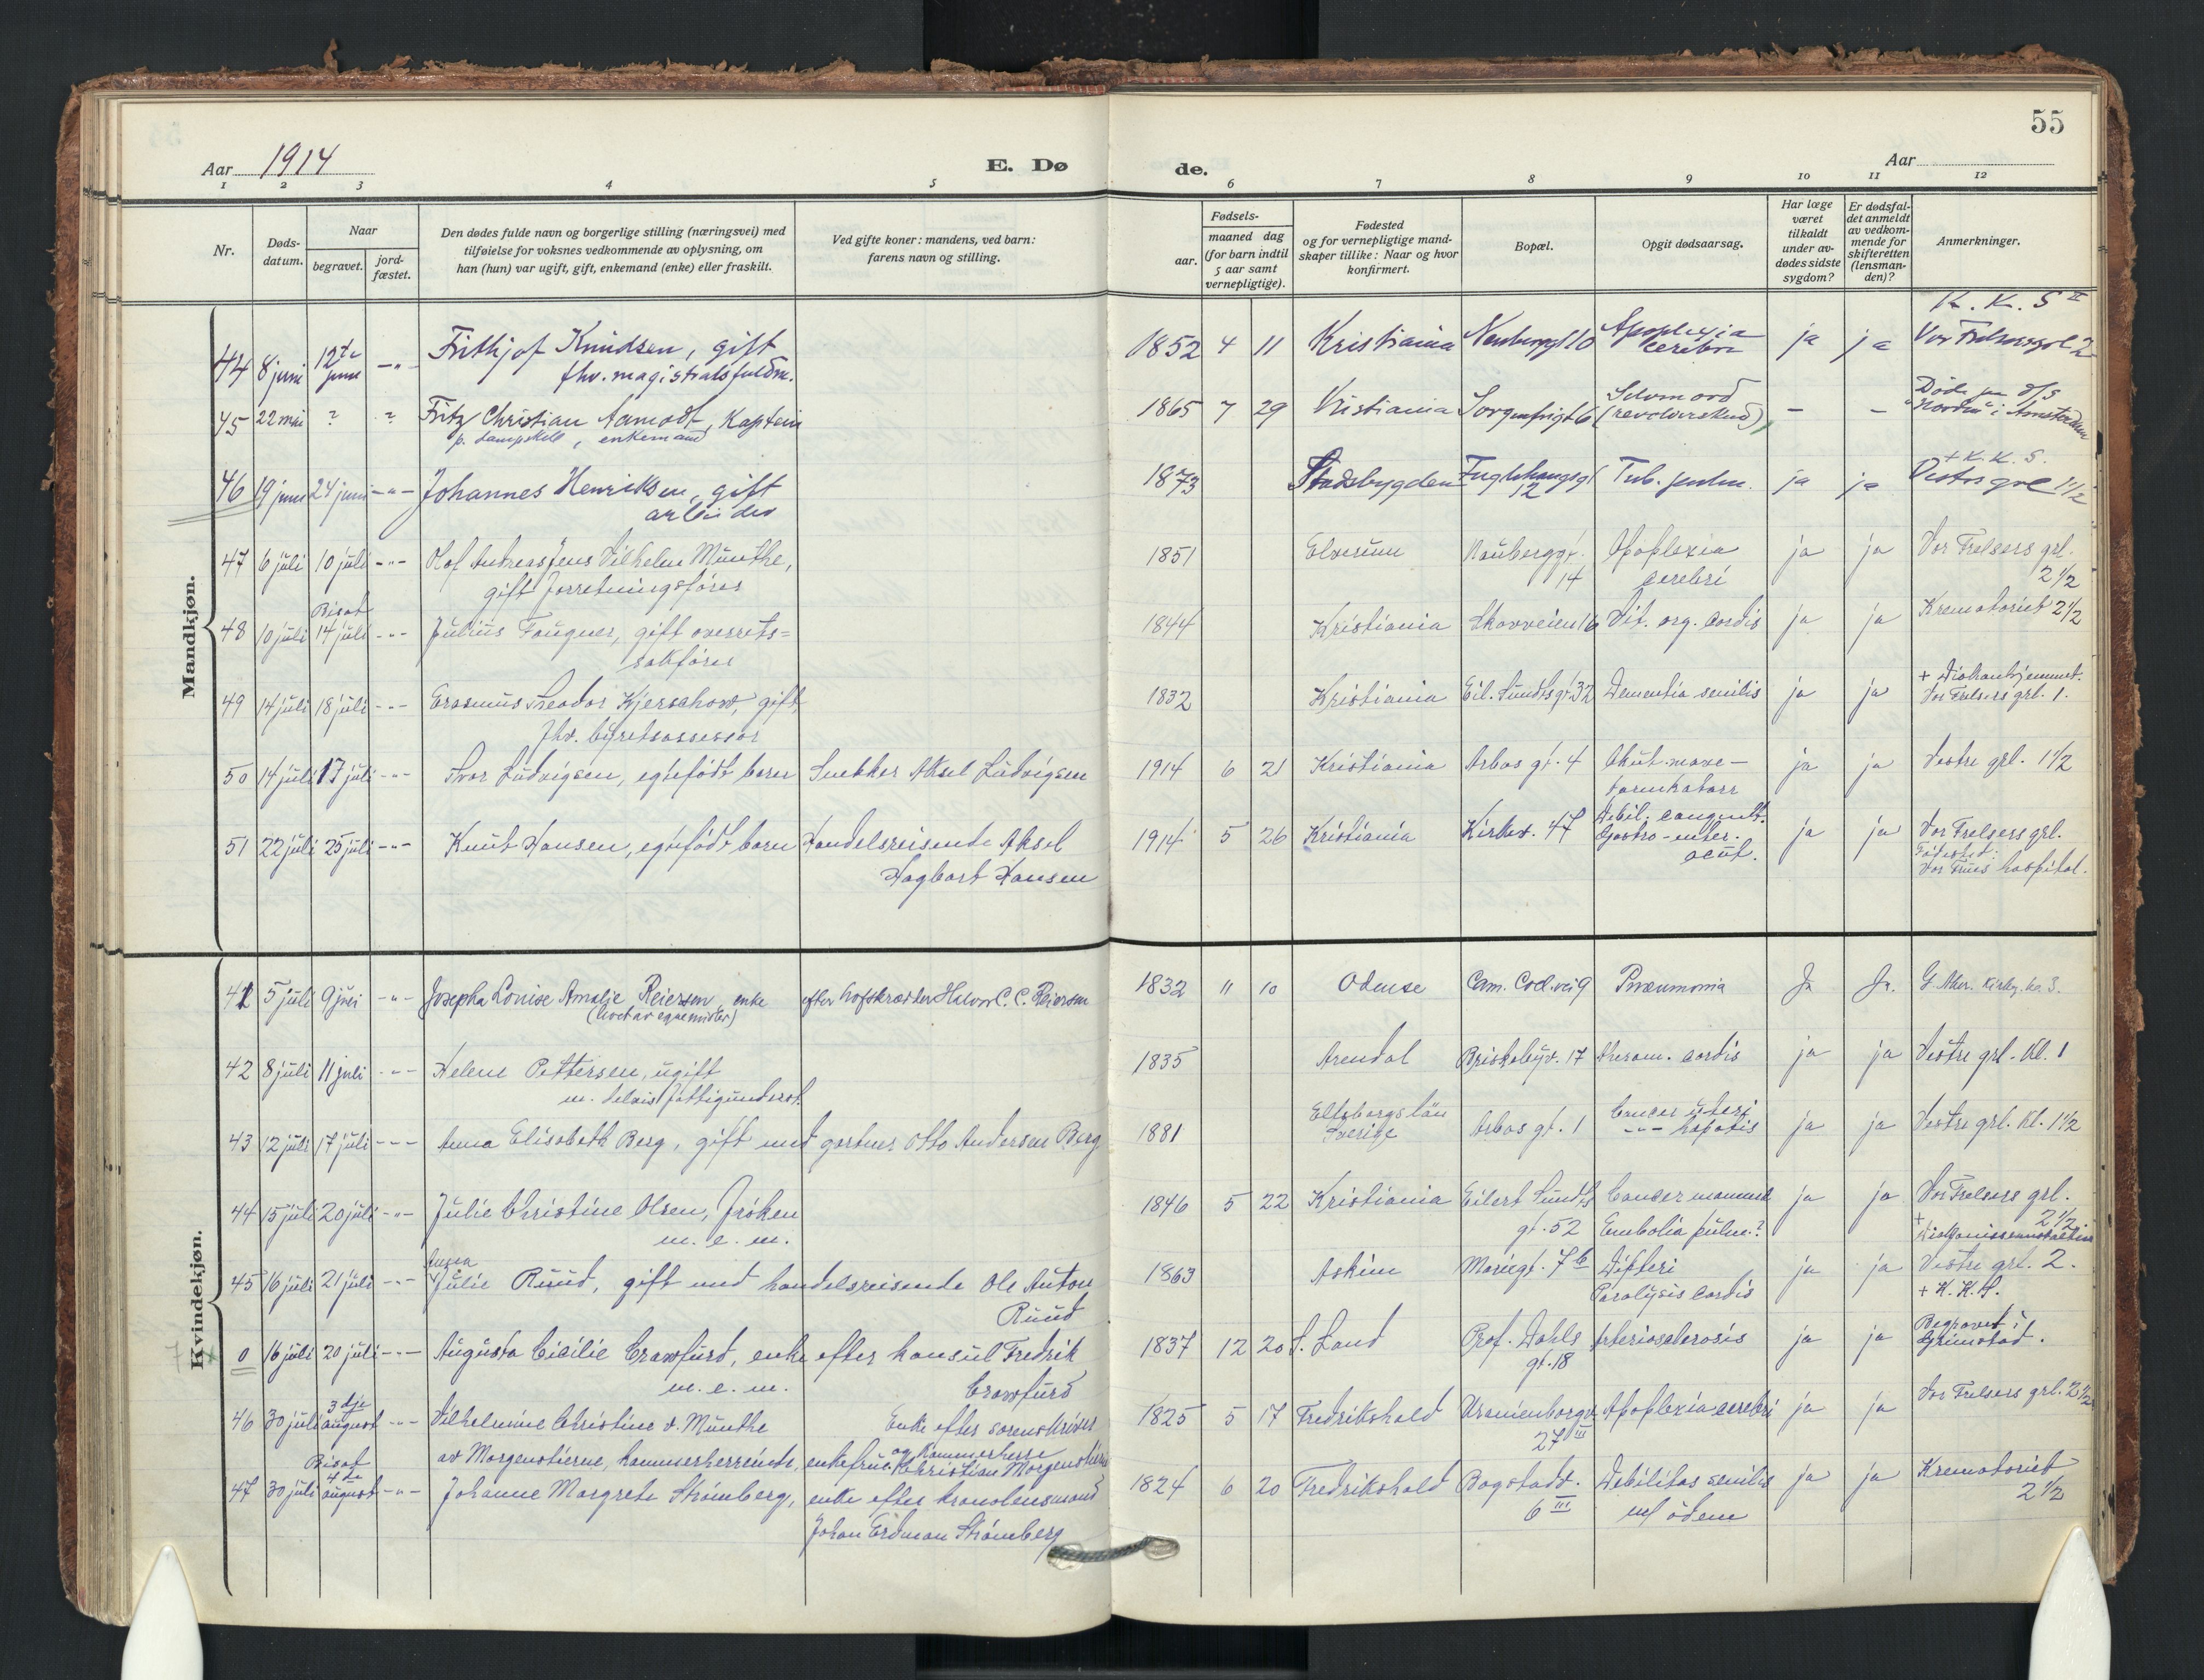 55
Aar 1914
E. Dø
de.
Aar
1 2 3 4 5 6 7 8 9 10 11 12
Nr.
Døds-
datum.
Naar
begravet.
jord-
fæstet.
Den dødes fulde navn og borgerlige stilling (næringsvei) med
tilføielse for voksnes vedkommende av oplysning, om
han (hun) var ugift, gift, enkemand (enke) eller fraskilt.
Ved gifte koner: mandens, ved barn:
farens navn og stilling.
Fødsels-
aar.
maaned dag
(for barn indtil
5 aar samt
vernepligtige).
Fødested
og for vernepligtige mand-
skaper tillike: Naar og hvor
konfirmert.
Bopæl.
Opgit dødsaarsag.
Har læge
været
tilkaldt
under av-
dødes sidste
sygdom?
Er dødsfal-
det anmeldt
av vedkom-
mende for
skifteretten
(lensman-
den)?
Anmerkninger.
Mandkjøn.
K. K. S II
44 8 juni 12te juni -"- Frithjof Knudsen, gift 1852 4 11 Kristiania Neuberggt 10 Apoplexia ja ja Vor Frelsersgrl 2
fhv. magistratsfuldm. cerebri
45 22 mai ? ? Fritz Christian Aamodt, Kaptein 1865 7 29 Kristiania Sorgenfrigt 6 Selvmord - - Døde paa d/s
p. dampskib, enkemand (revolverskud) "Norden" i Amsterdam
+ K. K. S.
46 19 juni 24 juni -"- Johannes Henriksen, gift 1873 Stadsbygden Fuglehaugsgt Tub. pulm. ja ja Vestre grl 1 1/2
arbeider 12
47 6 juli 10 juli -"- Olaf Andreas Jens Vilhelm Munthe, 1851 Elverum Neuberggt. Apoplexia ja ja Vor Frelsers grl.
gift forretningsfører 14 cerebri 2 1/2
48 10 juli Bisat 14 juli -"- Julius Fougner, gift overrets= 1844 Kristiania Skovveien 16 Vit. org. cordis ja ja Krematoriet 2 1/2
sakfører
49 14 juli 18 juli -"- Erasmus Theodor Kjerschow, gift, 1832 Kristiania Eil. Sundts gt. 32 Dementia senilis ja ja + Diakonhjemmet.
fhv. byretsassessor Vor Frelsers grl. 1.
50 14 juli 17 juli -"- Ivar Ludvigsen, egtefødt barn Snekker Aksel Ludvigsen 1914 6 21 Kristiania Arbos gt. 4 Akut mave- ja ja Vestre grl. 1 1/2
tarmkatarr
51 22 juli 25 juli -"- Knut Hansen, egtefødt barn Handelsreisende Aksel 1914 5 26 Kristiania Kirkev. 47 Debil. congenit. ja ja Vor Frelsers grl.
Hagbart Hansen Gastro-enter. Fødested:
acut. Vor Frues hospital.
Kvindekjøn.
41 5 juli 9 juli -"- Josepha Louise Amalie Reiersen, enke efter hofskrædder Halvor C. C. Reiersen 1832 11 10 Odense Cam. Coll. vei 9 Pneumonia Ja Ja. G. Aker. Kirkeg. kl. 3.
(levet av egne midler)
42 8 juli 11 juli -"- Helene Pettersen, ugift 1835 Arendal Briskebyv. 17 Atherom. cordis ja ja Vestre grl. kl. 1
m. delvis fattigunderst.
43 12 juli 17 juli -"- Anna Elisabeth Berg, gift med gartner Otto Andersen Berg 1881 Elfsborgs län Arbos gt. 1 Cancer uteri ja ja Vestre grl. kl. 1 1/2
Sverige -"- hepatis
44 15 juli 20 juli -"- Julie Christine Olsen, frøken 1846 5 22 Kristiania Eilert Sundts Cancer mammae ja ja Vor Frelsers grl.
m. e. m. gt. 52 Embolia pulm.? 2 1/2.
+ Diakonisseanstalten
45 16 juli 21 juli -"- Julie Ruud, gift med handelsreisende Ole Anton 1863 Askim Mariegt. 7 b Difteri ja ja Vestre grl. 2.
Ruud Paralysis cordis + K. K. S.
0 16 juli 20 juli -"- Augusta Cicilie Crawfurd, enke efter konsul Fredrik 1837 12 20 S. Land Prof. Dahls Arteriosclerosis ja ja Begravet i
m. e. m. Crawfurd gt. 18 Grimstad.
46 30 juli 3dje august -"- Vilhelmine Christine v. Munthe Enke efter sorenskriver 1825 5 17 Fredrikshald Uranienborgv. Apoplexia cerebri ja ja Vor Frelsers grl. 2 1/2
av Morgenstierne, kammerherreinde, enkefrue. og Kammerherre Christian Morgenstierne 27 III
47 30 juli Bisat 4de august -"- Johanne Margrete Strømberg, enke efter kronolensmand 1824 6 20 Fredrikshald Bogstadv. Debilitas senilis ja ja Krematoriet
Johan Erdman Strømberg 6 III m/ ødem 2 1/2